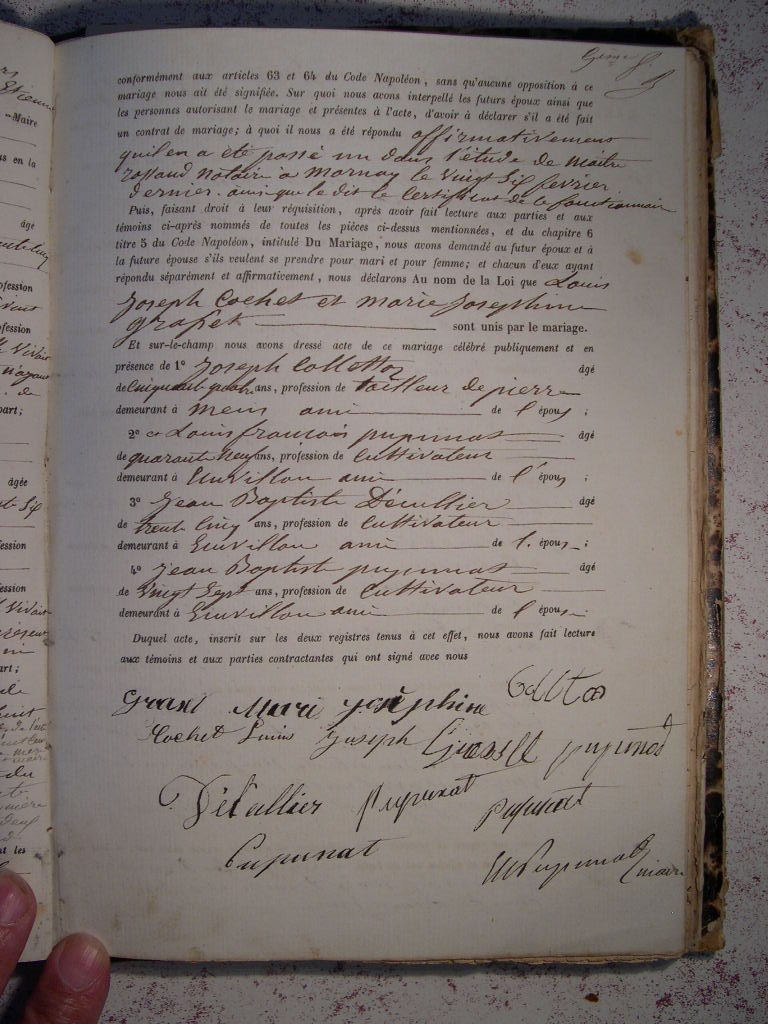 conformément aux articles 63 et 64 du Code Napoléon, sans qu'aucune opposition à ce
mariage nous ait été signifiée. Sur quoi nous avons interpellé les futurs époux ainsi que
les personnes autorisant le mariage et présentes à l'acte, d'avoir à déclarer s'il a été fait
un contrat de mariage; à quoi il nous a été répondu affirmativement
qu'il en a été passé un dans l'étude de maître
notaire a mornay le vingt six fevrier
dernier. ainsi que le dit le Certificat de ce fonctionnaire
Puis, faisant droit à leur réquisition, après avoir fait lecture aux parties et aux
témoins ci-après nommés de toutes les pièces ci-dessus mentionnées, et du chapitre 6
titre 5 du Code Napoléon, intitulé Du Mariage, nous avons demandé au futur époux et à
la future épouse s'ils veulent se prendre pour mari et pour femme; et chacun d'eux ayant
répondu séparément et affirmativement, nous déclarons Au nom de la Loi que Louis
Joseph Cochet et marie Josephine
grafet sont unis par le mariage.
Et sur-le-champ nous avons dressé acte de ce mariage célébré publiquement et en
présence de 1° Joseph Collettaz âgé
de cinquante quatre ans, profession de tailleur de pierre
demeurant à ami de l'épous ;
2° Louis françois pupunat âgé
de quarante neuf ans, profession de Cultivateur
demeurant à ami de l'épous ;
3° Jean Baptiste Décullier âgé
de trente cinq ans, profession de Cultivateur
demeurant à ami de l'épous ;
4° Jean Baptiste pupunat âgé
de vingt sept ans, profession de Cultivateur
demeurant à ami de l'épous
Duquel acte, inscrit sur les deux registres tenus à cet effet, nous avons fait lecture
aux témoins et aux parties contractantes qui ont signé avec nous
Marie josephine
Cochet Louis Joseph pupunat
Pupunat Pupunat
Pupunat Pupunat maire